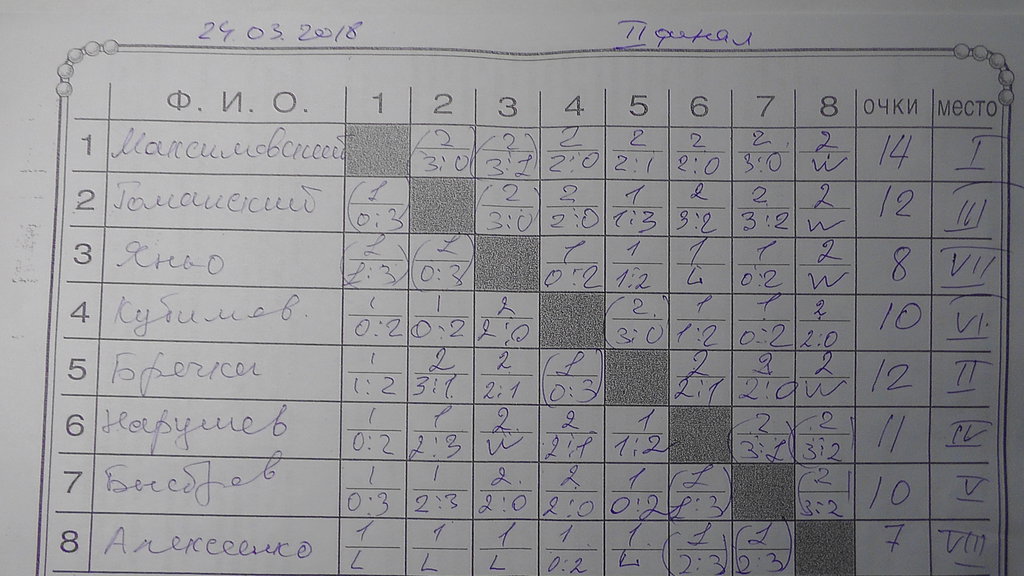 24.03.2018 II финал
Ф. И. О. 1 2 3 4 5 6 7 8 очки место
1 Максимовский (2 3:0) (2 3:1) 2 2:0 2 2:1 2 2:0 2 3:0 2 W 14 I
2 Томанский (1 0:3) (2 3:0) 2 2:0 1 1:3 2 3:2 2 3:2 2 W 12 III
3 Яньо (1 1:3) (1 0:3) 1 0:2 1 1:2 1 L 1 0:2 2 W 8 VII
4 1 0:2 1 0:2 2 2:0 (2 3:0) 1 1:2 1 0:2 2 2:0 10 VI.
5 Бречка 1 1:2 2 3:1 2 2:1 (1 0:3) 2 2:1 2 2:0 2 W 12 II
6 Нарушев 1 0:2 1 2:3 2 W 2 2:1 1 1:2 (2 3:1) (2 3:2) 11 IV
7 1 0:3 1 2:3 2 2:0 2 2:0 1 0:2 (1 1:3) (2 3:2) 10 V
8 Алексеенко 1 L 1 L 1 L 1 0:2 1 L (1 2:3) (1 2:3) 7 VIII